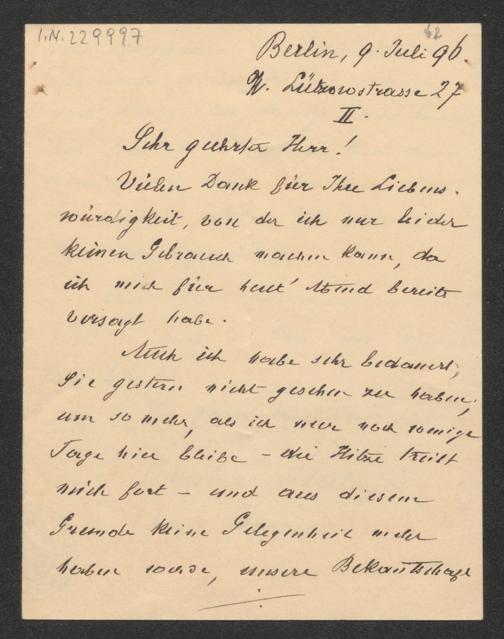 I.N. 229997
62
Berlin, 9. Juli 96.
W. Lützowstrasse 27
II.
Sehr geehrter Herr!
Vielen Dank für Ihre Liebens-
würdigkeit, von der ich nur leider
keinen Gebrauch machen kann, da
ich mich für heut' Abend bereits
versagt habe.
Auch ich habe sehr bedauert,
Sie gestern nicht gesehen zu haben,
um so mehr, als ich nur noch wenige
Tage hier bleibe – die Hitze treibt
mich fort – und aus diesem
Grunde keine Gelegenheit mehr
haben werde, unsere Bekantschaft